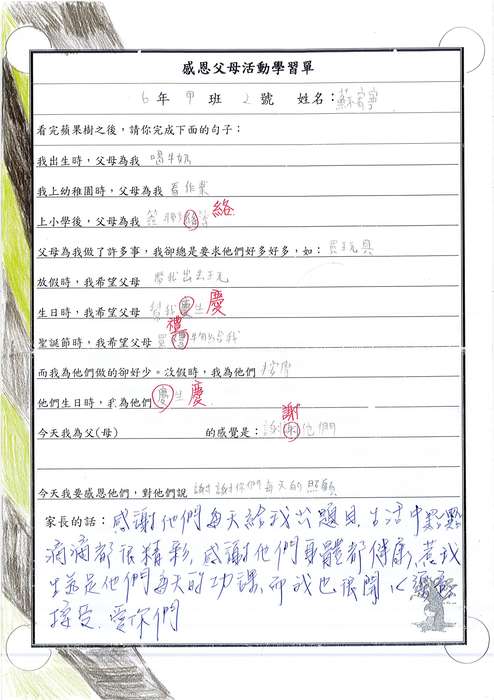 感恩父母活動學習單
6 年 甲 班 2 號 姓名：蘇
看完蘋果樹之後，請你完成下面的句子：
我出生時，父母為我 喝牛奶
我上幼稚園時，父母為我 看作業
上小學後，父母為我 簽聯絡
絡
父母為我做了許多事，我卻總是要求他們好多好多，如： 買玩具
放假時，我希望父母 帶我出去玩
生日時，我希望父母 幫我慶生 慶
禮
聖誕節時，我希望父母 買禮物給我
而我為他們做的卻好少。沒假時，我為他們
他們生日時，我為他們 慶生 慶
謝
今天我為父(母) 的感覺是： 謝謝他們
今天我要感恩他們，對他們說 謝謝你們每天的照顧
家長的話： 感謝他們每天給我出題目，生活中點點
滴滴都很精彩，感謝他們身體都健康，惹我
生氣是他們每天的功課，而我也很開心
接受，愛你們